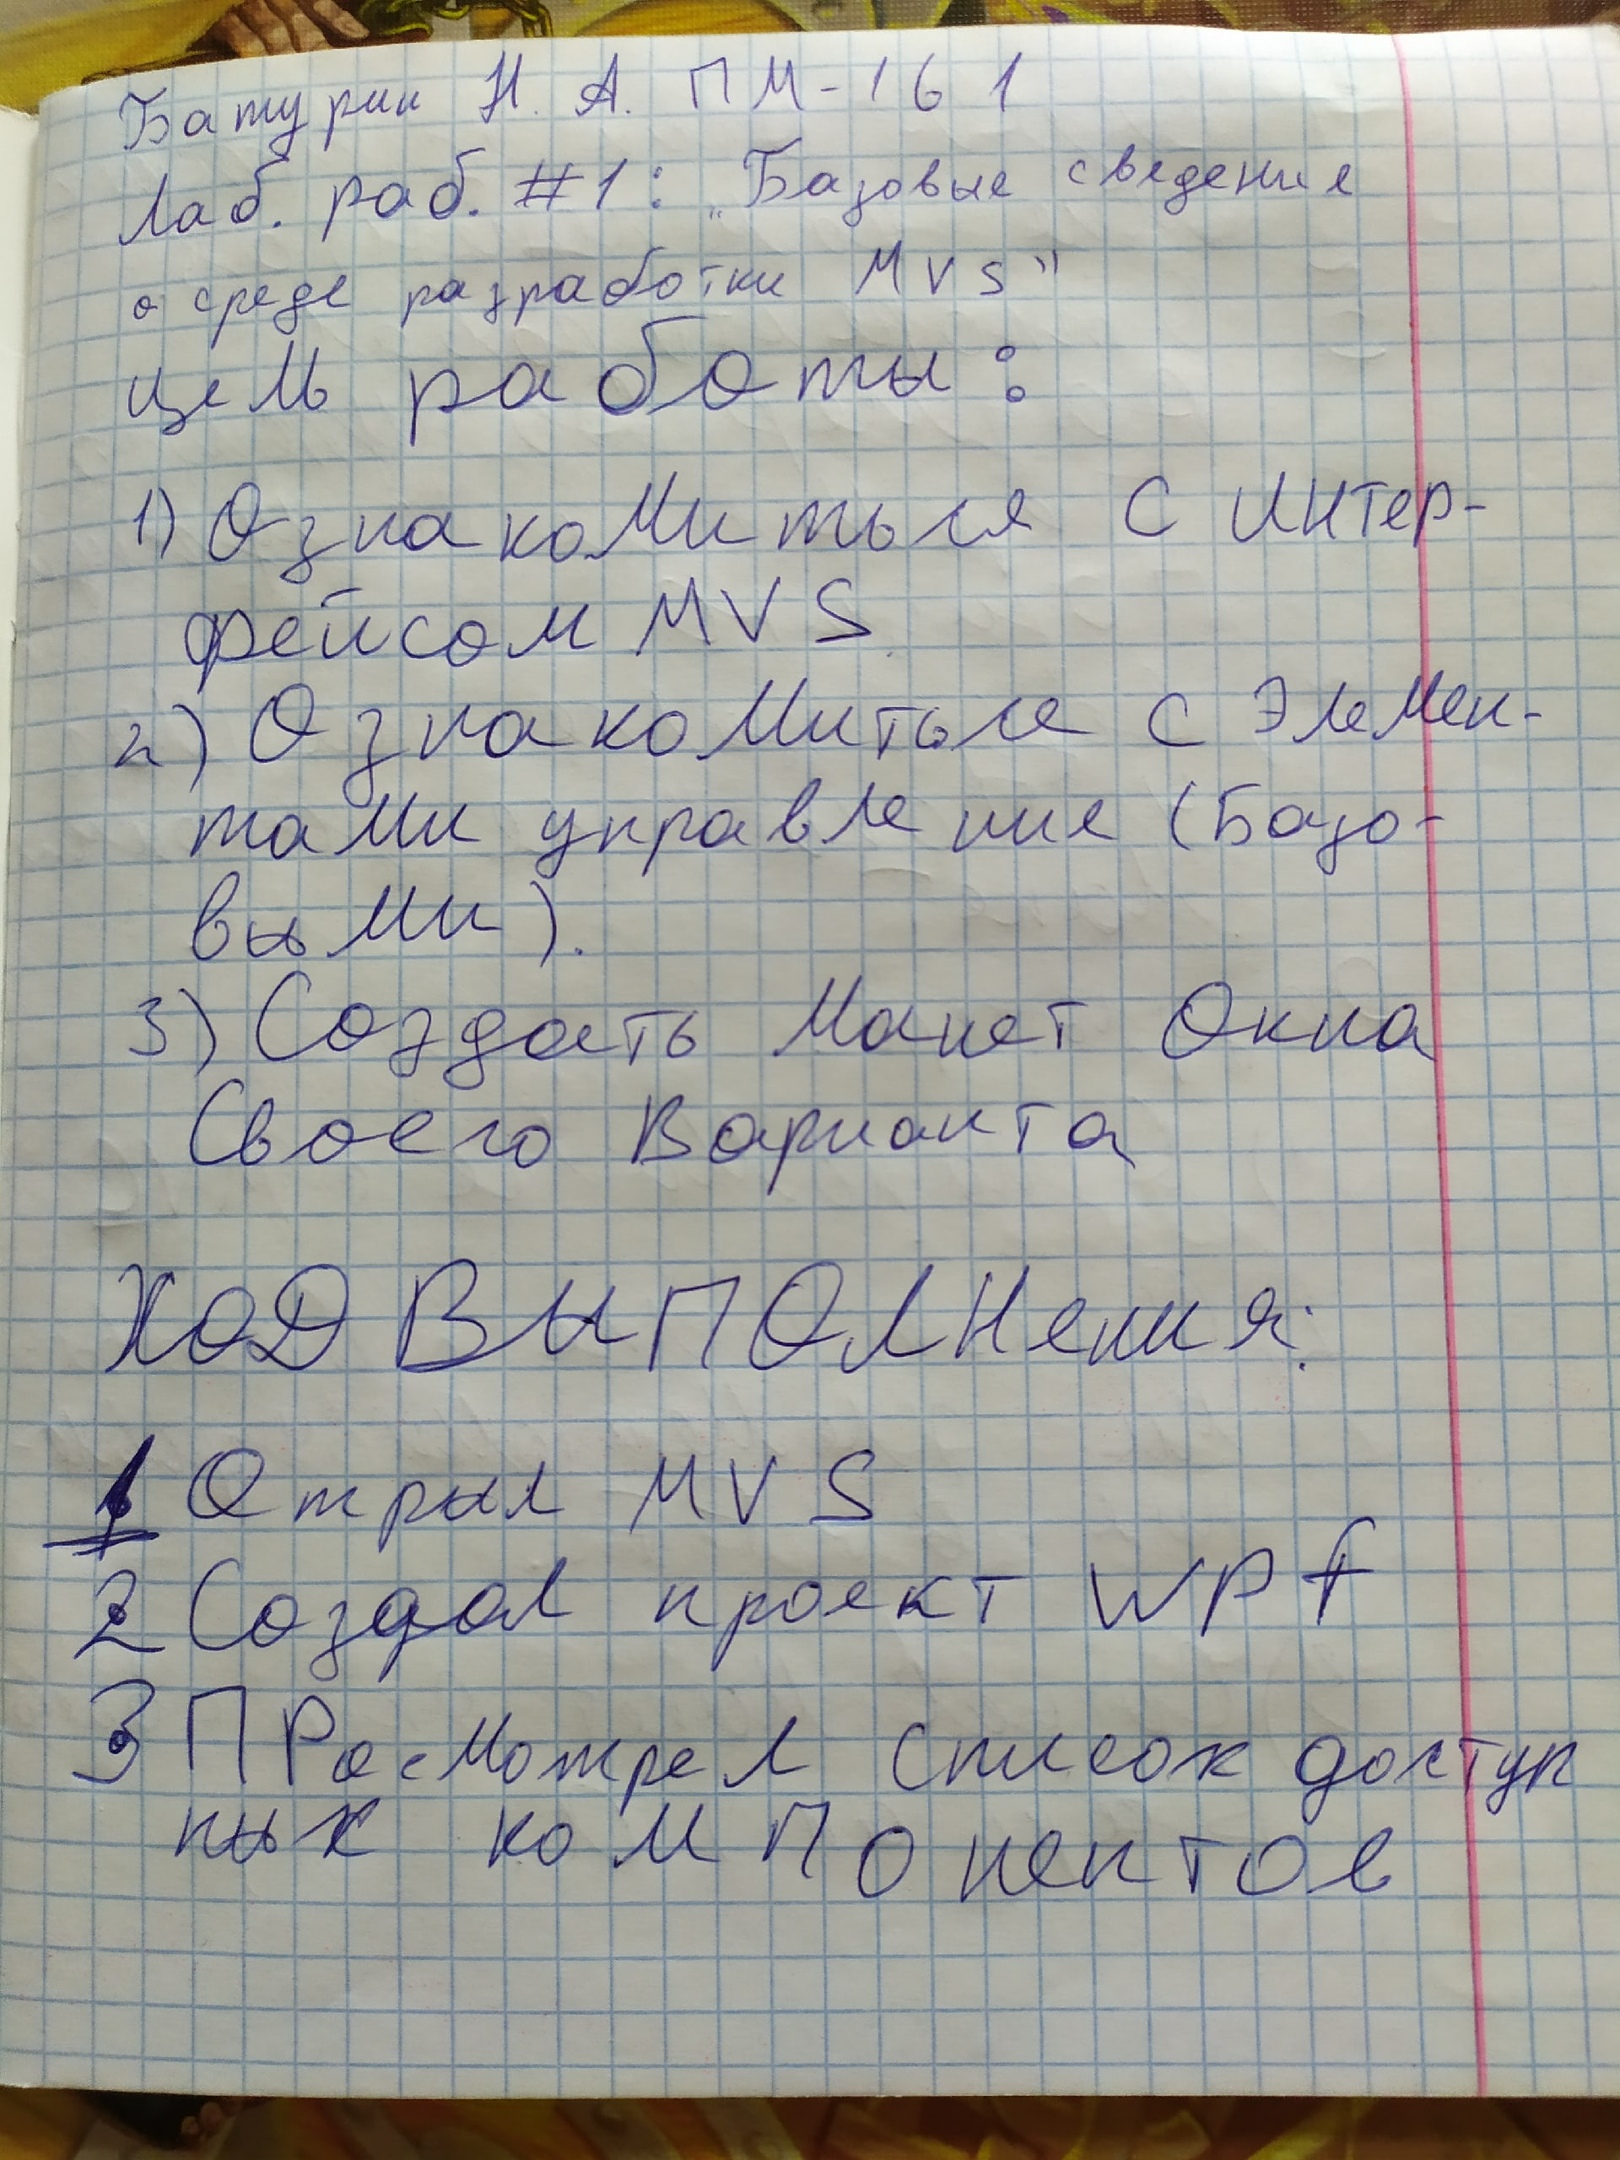 Батурин Н. А. ПМ-161
Лаб. раб. #1: „Базовые сведения
о среде разработки MVS"
цель работы:
1) Ознакомиться с интер-
фейсом MVS.
2) Ознакомиться с элемен-
тами управление (Базо-
выми).
3) Создать Макет Окна
Своего Варианта
ХОД ВЫПОЛНения:
1 Открыл MVS
2 Создал проект WPf
3 ПРосмотрел список доступ
ных компонентов